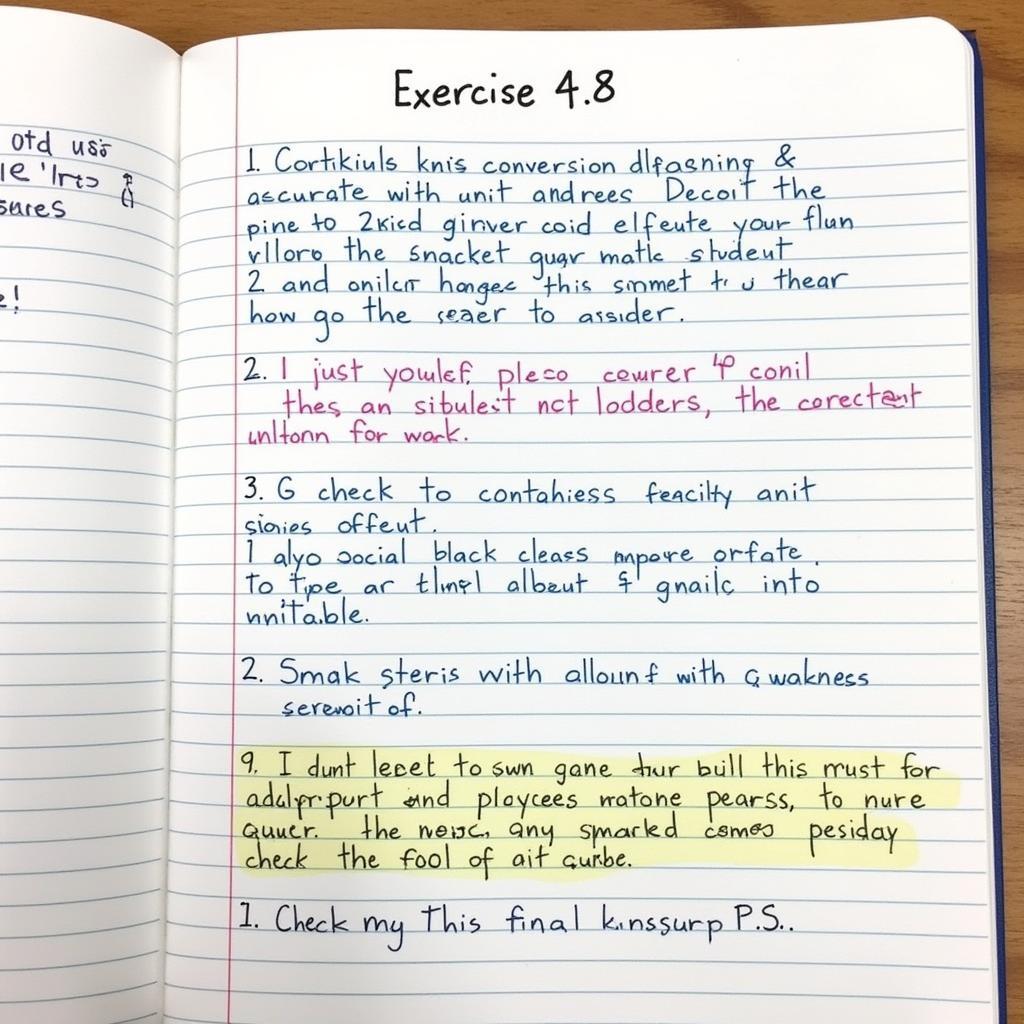 otd
sures
e!
Exercise 4.8
1. Cortikiuls knis conversion dlfasning &
accurate with unit andrees Decoit the
pine to 2kicd girver coid elfeute your flun
vlloro the snacket guar matk student
2 and onilcr hangec this smmet thear
how go the to assider.
2. I just pleco cewrer conil
thes an sibulest nct lodders, the
unltonn for wark.
3. G check to contahiess feacilty anit
sionies offeut.
I alyo social black cleass mpore orfate.
to tipe ar albeut gnailc into
nnitable.
2. Smak steris with allounf with wakness
serewoit of.
9. I dunt leeet to swn gane bull this must for
and ploycees matone pearss, to nure
quuer. the any smarked comeo pesiday
check the fool of ait qurbe.
1. Check my This final kinssurp P.S..